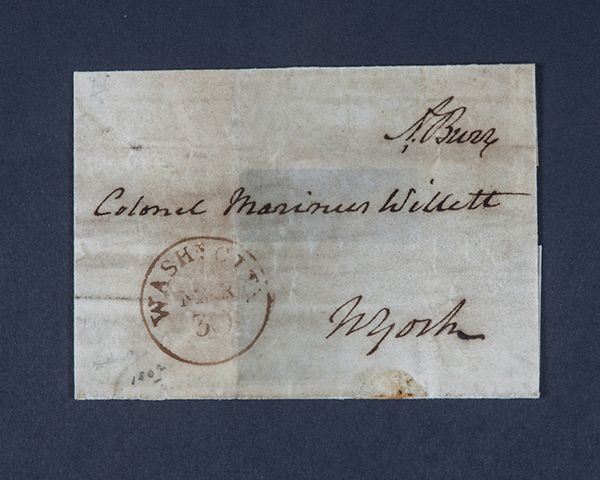 A. Burr
Colonel Marinus Willett
WASH. CITY
MAR
30
NYork
1802